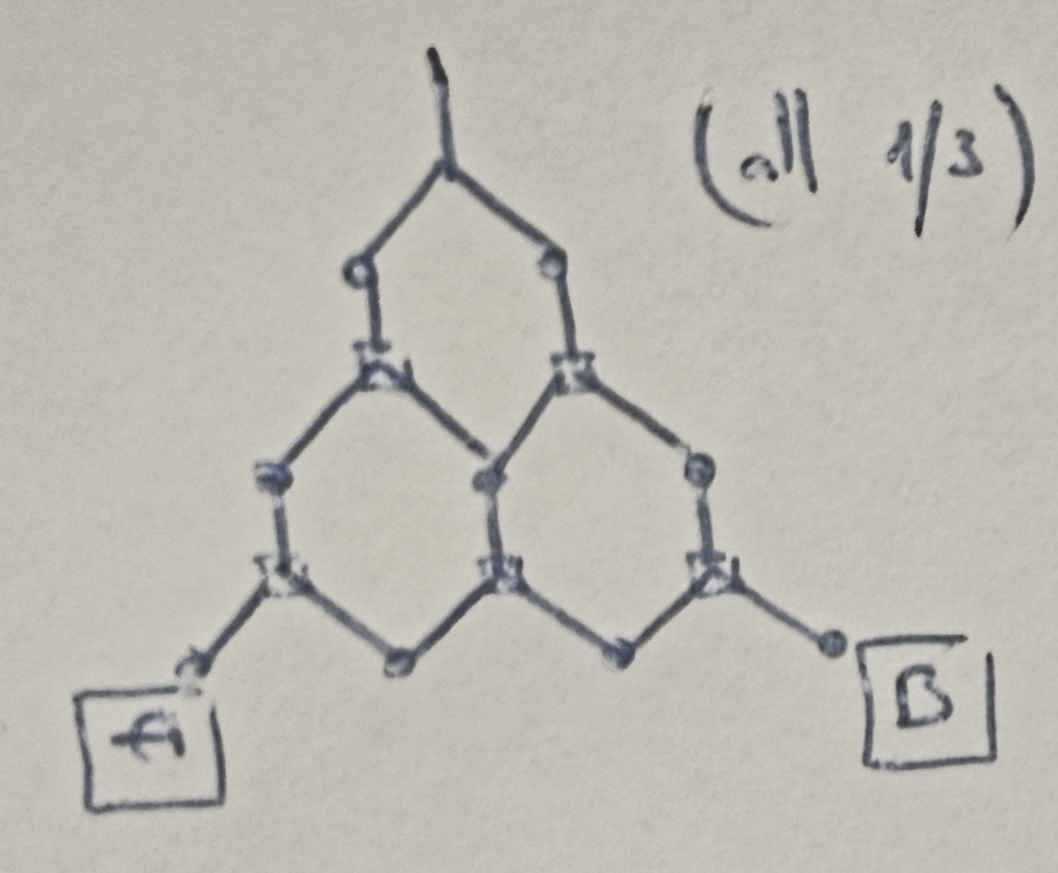 (all 1/3)
A
B